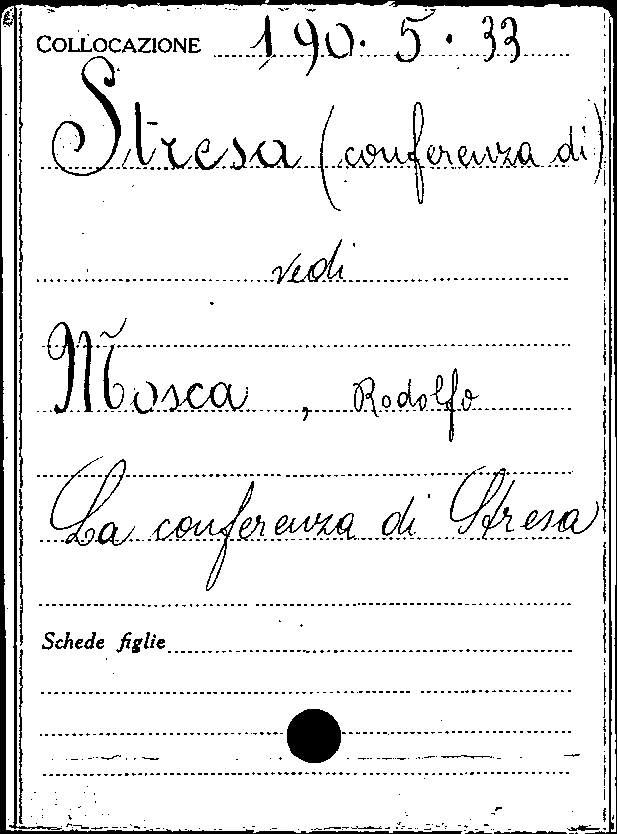 COLLOCAZIONE 190. 5. 33
Stresa (conferenza di)
vedi
Mosca, Rodolfo
La conferenza di Stresa
Schede figlie